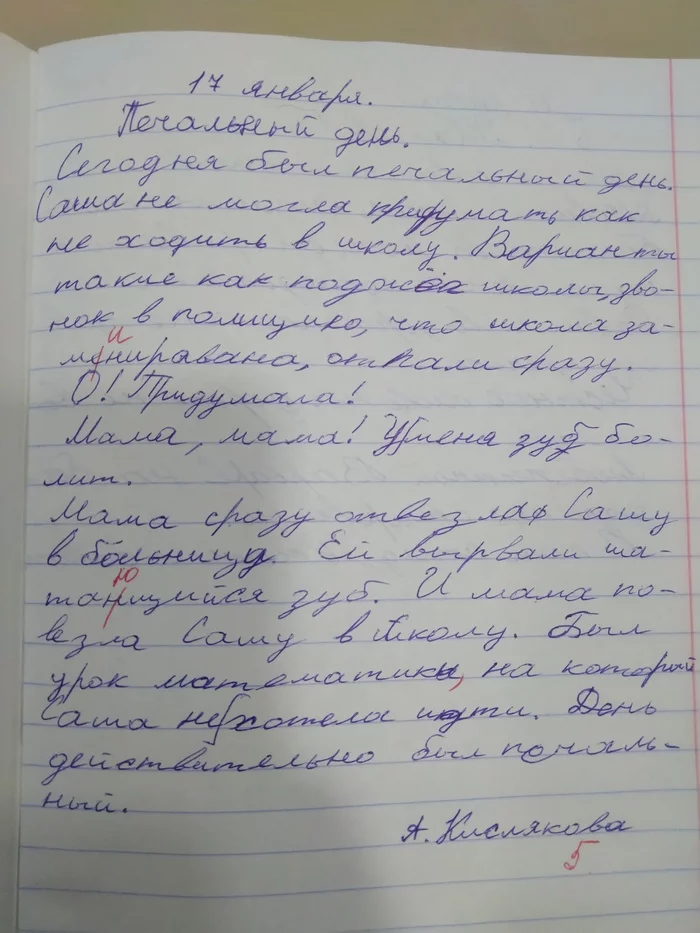 17 января.
Печальный день.
Сегодня был печальный день.
Саша не могла придумать как
не ходить в школу. Варианты
такие как поджог школы, зво-
нок в полицию, что школа за-
минирована, отпали сразу.
О! Придумала!
Мама, мама! У меня зуб бо-
лит.
Мама сразу отвезла Сашу
в больницу. Ей вырвали ша-
тающийся зуб. И мама по-
везла Сашу в школу. Был
урок математики, на который
Саша не хотела идти. День
действительно был печаль-
ный.
А. Кислякова
5